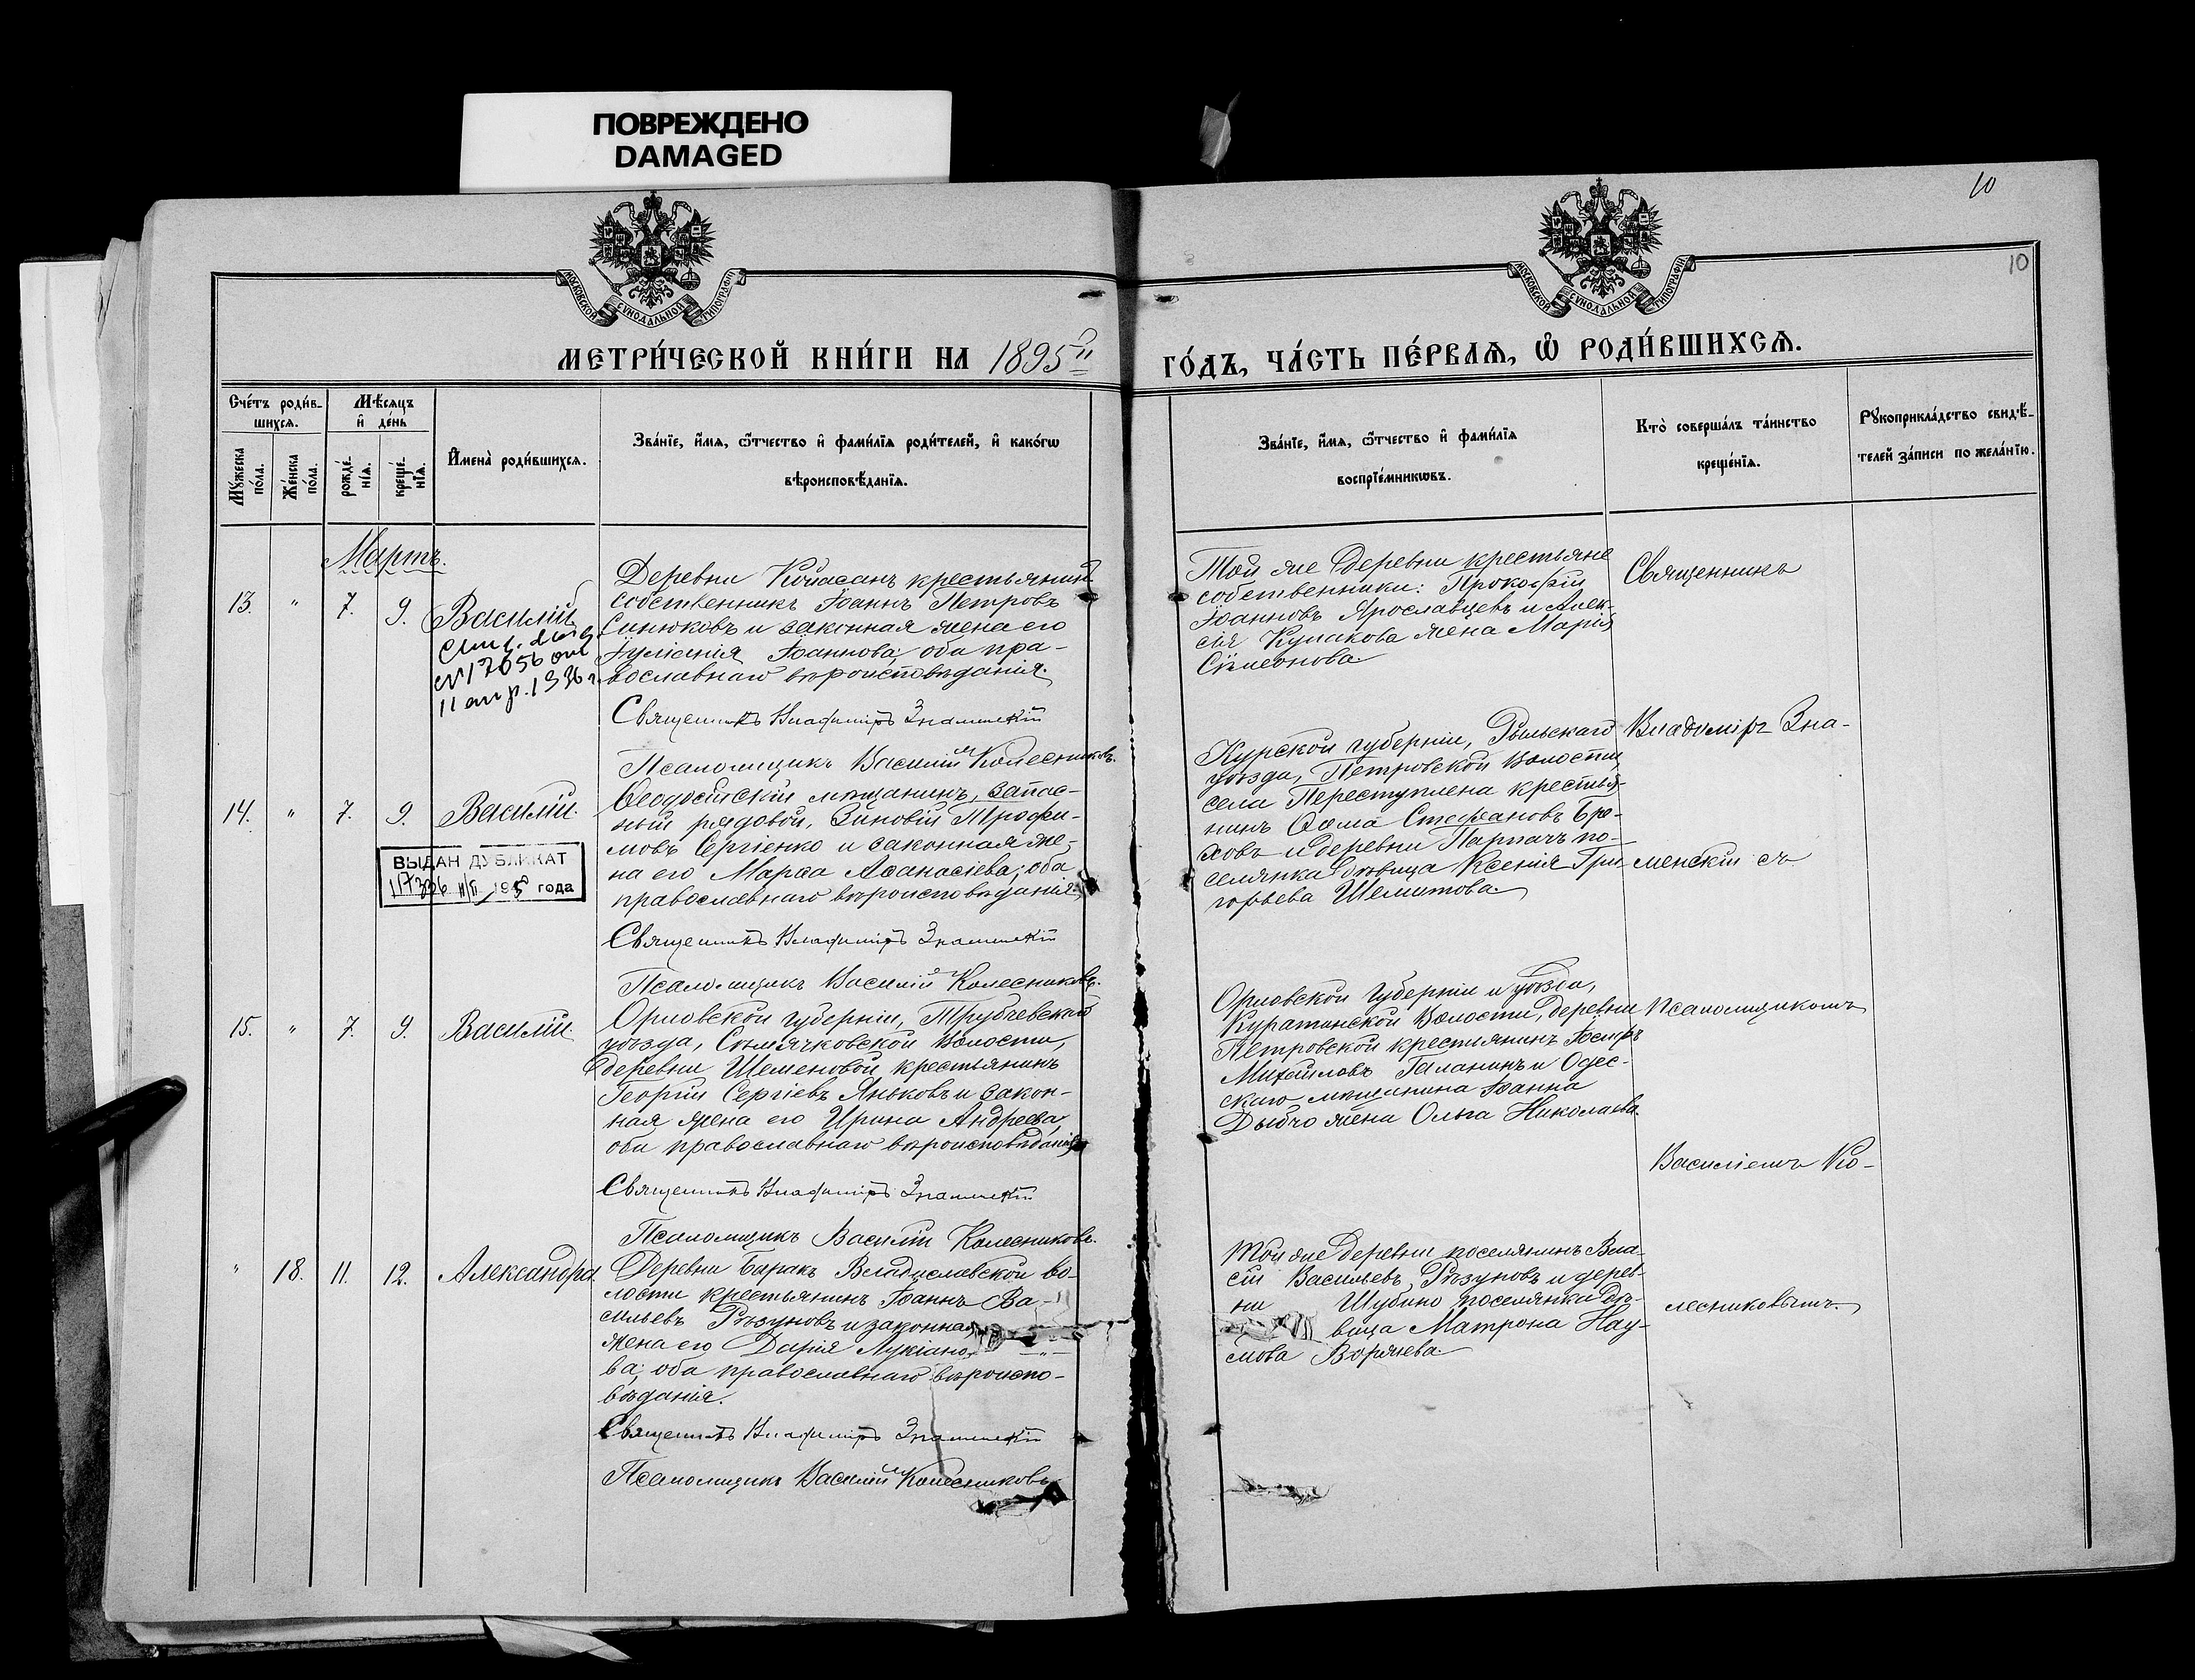 ПОВРЕЖДЕНО
DAMAGED
10
10
МОСКОВСКОЙ СУНОДАЛЬНОЙ ТИПОГРАФІИ
МОСКОВСКОЙ СУНОДАЛЬНОЙ ТИПОГРАФІИ
МЕТРИ́ЧЕСКОЙ КНИ́ГИ НА 1895й
ГО́ДЪ, ЧА́СТЬ ПЕ́РВАѦ, Ѡ҆ РОДИ́ВШИХСѦ.
Сче́тъ роди́в-
шихсѧ.
Мѣ́сѧцъ
и҆ де́нь
Мꙋ́жеска по́ла.
Же́нска по́ла.
рожде́-нїѧ.
креще́-нїѧ.
И҆мена̀ роди́вшихсѧ.
Зва́нїе, и҆́мѧ, ѻ҆́тчество и҆ фами́лїѧ роди́телей, и҆ како́гѡ
вѣроисповѣ́данїѧ.
Зва́нїе, и҆́мѧ, ѻ҆́тчество и҆ фами́лїѧ
воспрїе́мникѡвъ.
Кто̀ соверша́лъ та́инство
креще́нїѧ.
Рꙋкоприкла́дство свидѣ́-
телей за́писи по жела́нїю.
Мартъ.
13. " 7. 9. Василій
№17656 от
11 апр.
Деревни крестьянинъ
собственникъ Іоаннъ Петровъ
Синюковъ и законная жена его
Іуліанія Іоаннова; оба пра-
вославнаго вѣроисповѣданія.
Священникъ Владиміръ Знаменскій
Псаломщикъ Василій Колесниковъ.
Той же деревни крестьяне
собственники: Прокофій
Іоанновъ Ярославцевъ и Алек-
сія Кулакова жена Марія
Сѵмеонова.
Священникъ
Владиміръ Зна-
менскій съ
Псаломщикомъ
Василіемъ Ко-
лесниковымъ.
14. " 7. 9. Василій.
ВЫДАН ДУБЛИКАТ
195 года
Ѳеодосійскій мѣщанинъ, запас-
ный рядовой, Зиновій Трофи-
мовъ Сергіенко и законная же-
на его Марѳа Аѳанасіева; оба
православнаго вѣроисповѣданія.
Священникъ Владиміръ Знаменскій
Псаломщикъ Василій Колесниковъ.
Курской губерніи, Рыльскаго
уѣзда, Петровской волости,
села Переступлена крестья-
нинъ Ѳома Стефановъ Бро-
ховъ и деревни Парпачъ по-
селянка дѣвица Ксенія Гри-
горьева Шеметова.
15. " 7. 9. Василій.
Орловской губерніи, Трубчевскаго
уѣзда, Сѣмячковской волости,
деревни Шеменовой крестьянинъ
Георгій Сергіевъ Яньковъ и закон-
ная жена его Ирина Андреева;
оба православнаго вѣроисповѣданія.
Священникъ Владиміръ Знаменскій
Псаломщикъ Василій Колесниковъ.
Орловской губерніи и уѣзда,
Куракинской волости, деревни
Петровской крестьянинъ Іосифъ
Михайловъ Галанинъ и Одес-
скаго мѣщанина Іоанна
жена Ольга Николаева.
" 18. 11. 12. Александра.
Деревни Баракъ Владиславской во-
лости крестьянинъ Іоаннъ Ва-
сильевъ Рѣзуновъ и законная
жена его Дарія Лукіано-
ва; оба православнаго вѣроиспо-
вѣданія.
Священникъ Владиміръ Знаменскій
Псаломщикъ Василій Колесниковъ.
Той же деревни поселянинъ Вла-
сій Васильевъ Рѣзуновъ и дерев-
ни Шубино поселянка дѣ-
вица Матрона Нау-
мова